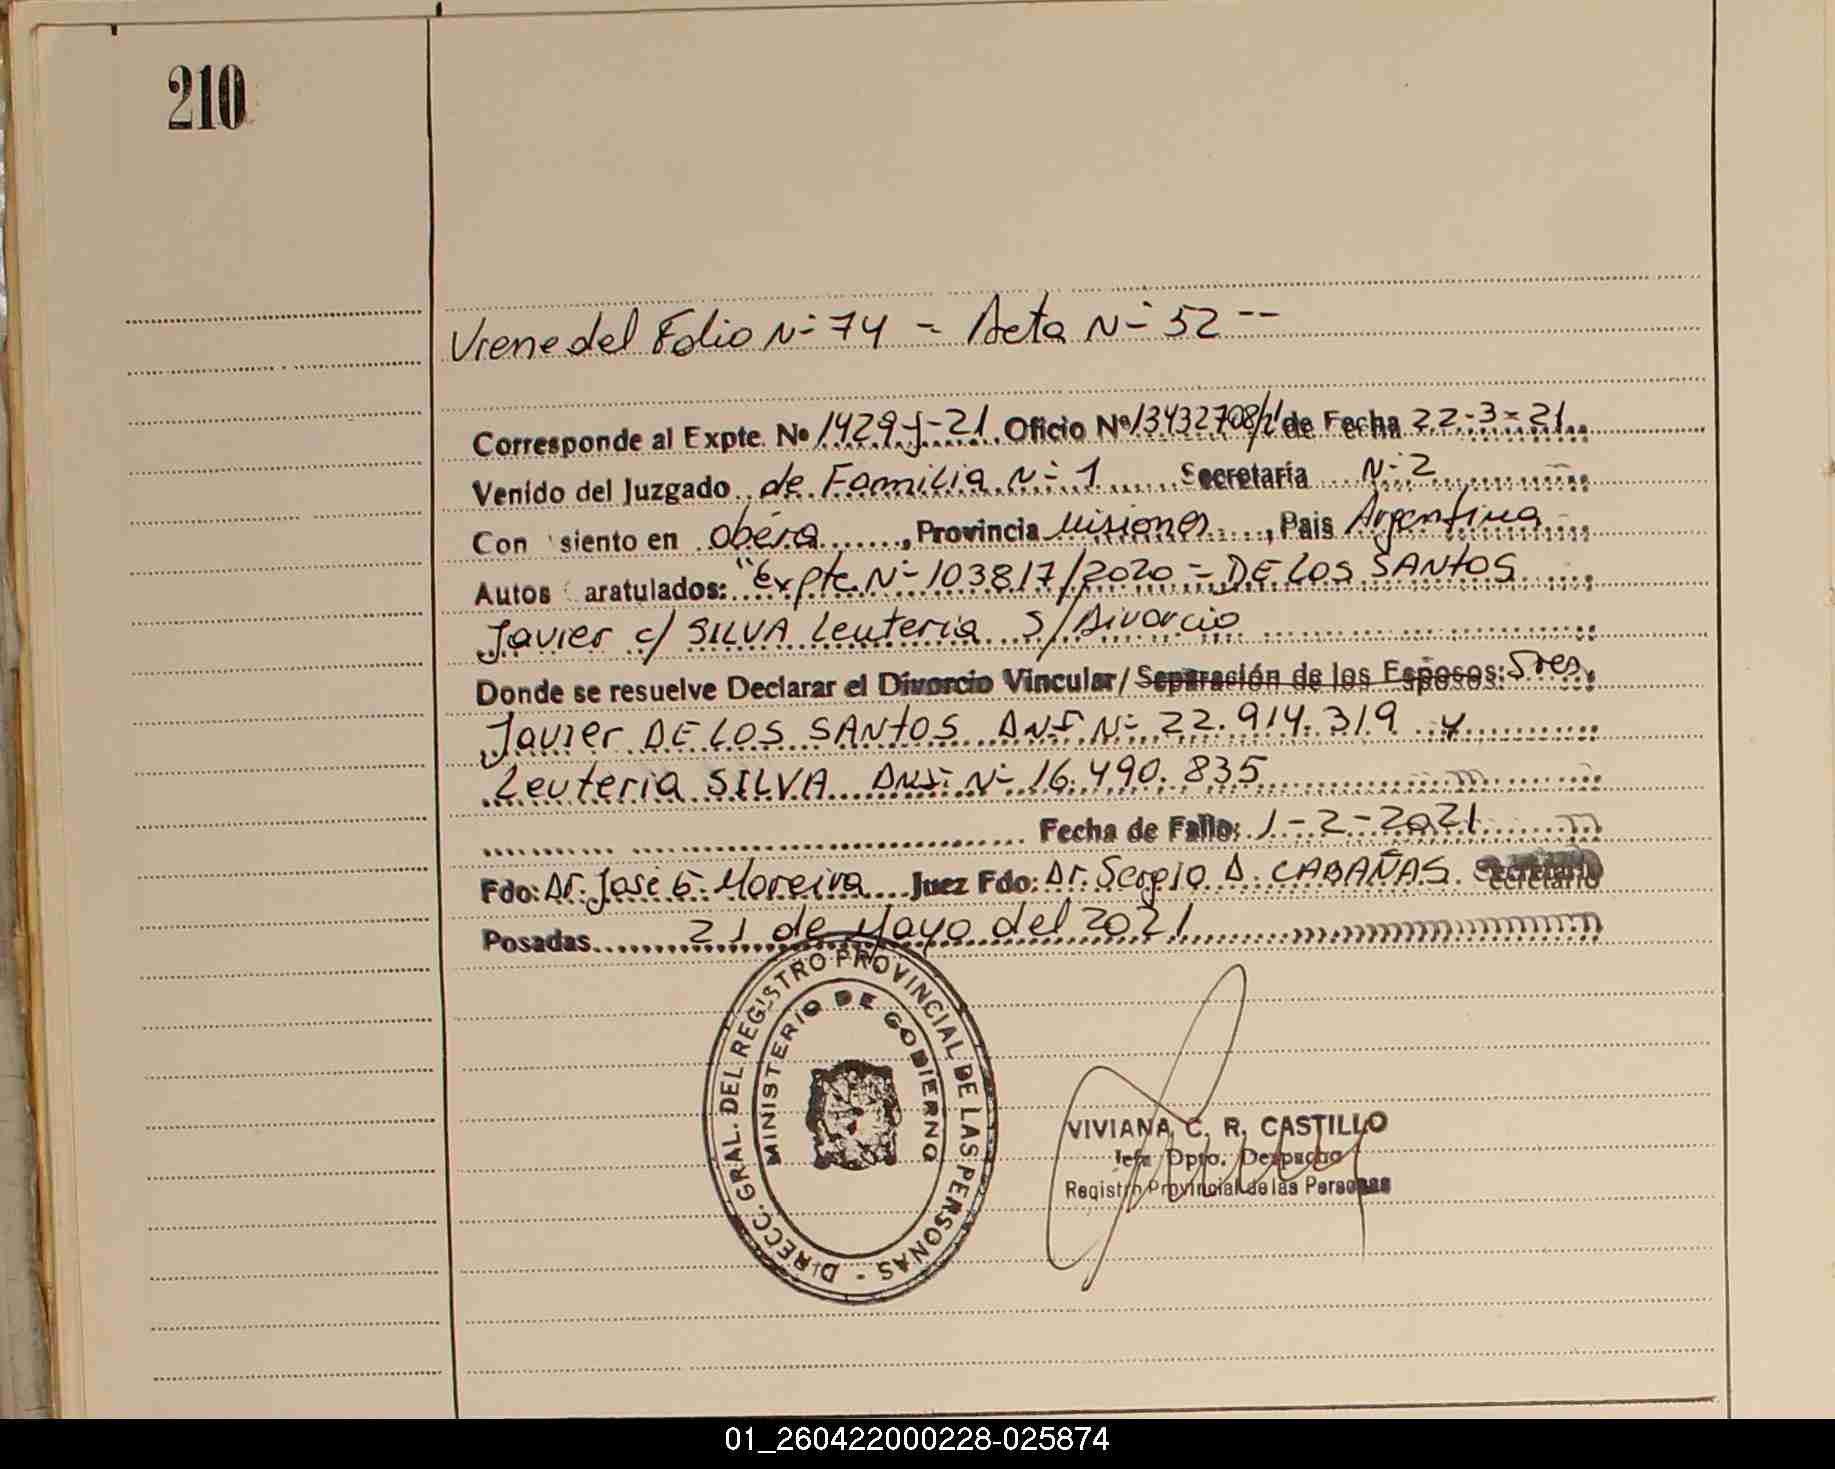 210
Viene del Folio Nº 74 - Acta Nº 52 --
Corresponde al Expte. Nº 1429-J-21 Oficio Nº 13432708/21 de Fecha 22-3-21
Venido del Juzgado de Familia Nº 1 Secretaría Nº 2
Con siento en Oberá, Provincia Misiones, País Argentina
Autos aratulados: "Expte Nº 103817/2020 - DE LOS SANTOS
Javier c/ SILVA Leuteria S/Divorcio
Donde se resuelve Declarar el Divorcio Vincular/Separación de los Esposos: Sres.
Javier DE LOS SANTOS DNI Nº 22.914.319 y
Leuteria SILVA DNI Nº 16.490.835
Fecha de Fallo: 1-2-2021
Fdo: Dr. José G. Moreira Juez Fdo: Dr. Sergio D. CABAÑAS. Secretario
Posadas 21 de Mayo del 2021
DIRECC. GRAL. DEL REGISTRO PROVINCIAL DE LAS PERSONAS -
MINISTERIO DE GOBIERNO
VIVIANA C. R. CASTILLO
Jefa Dpto. Despacho
Registro Provincial de las Personas
01_260422000228-025874